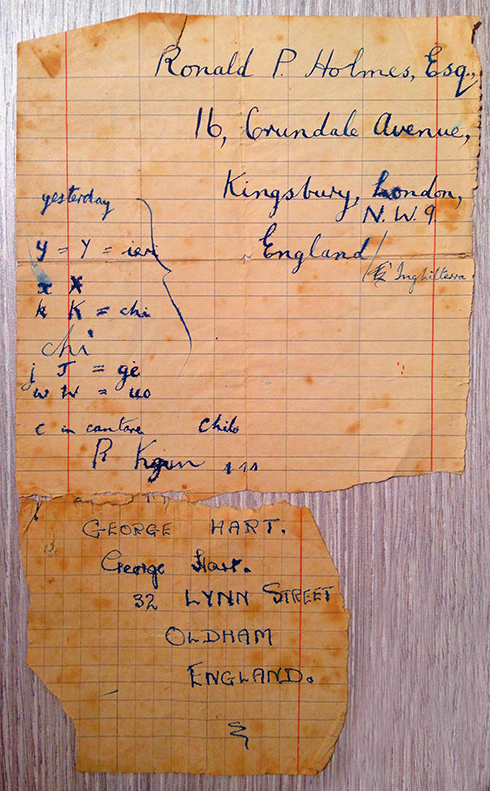 Ronald P. Holmes, Esq.,
16, Crundale Avenue,
Kingsbury, London,
N.W.9.
England
Inghilterra
yesterday
y = Y = ieri
x X
k K = chi
chi
j J = ge
w W = uo
c in cantare Chilo
R
GEORGE HART.
George Hart.
32 LYNN STREET
OLDHAM
ENGLAND.